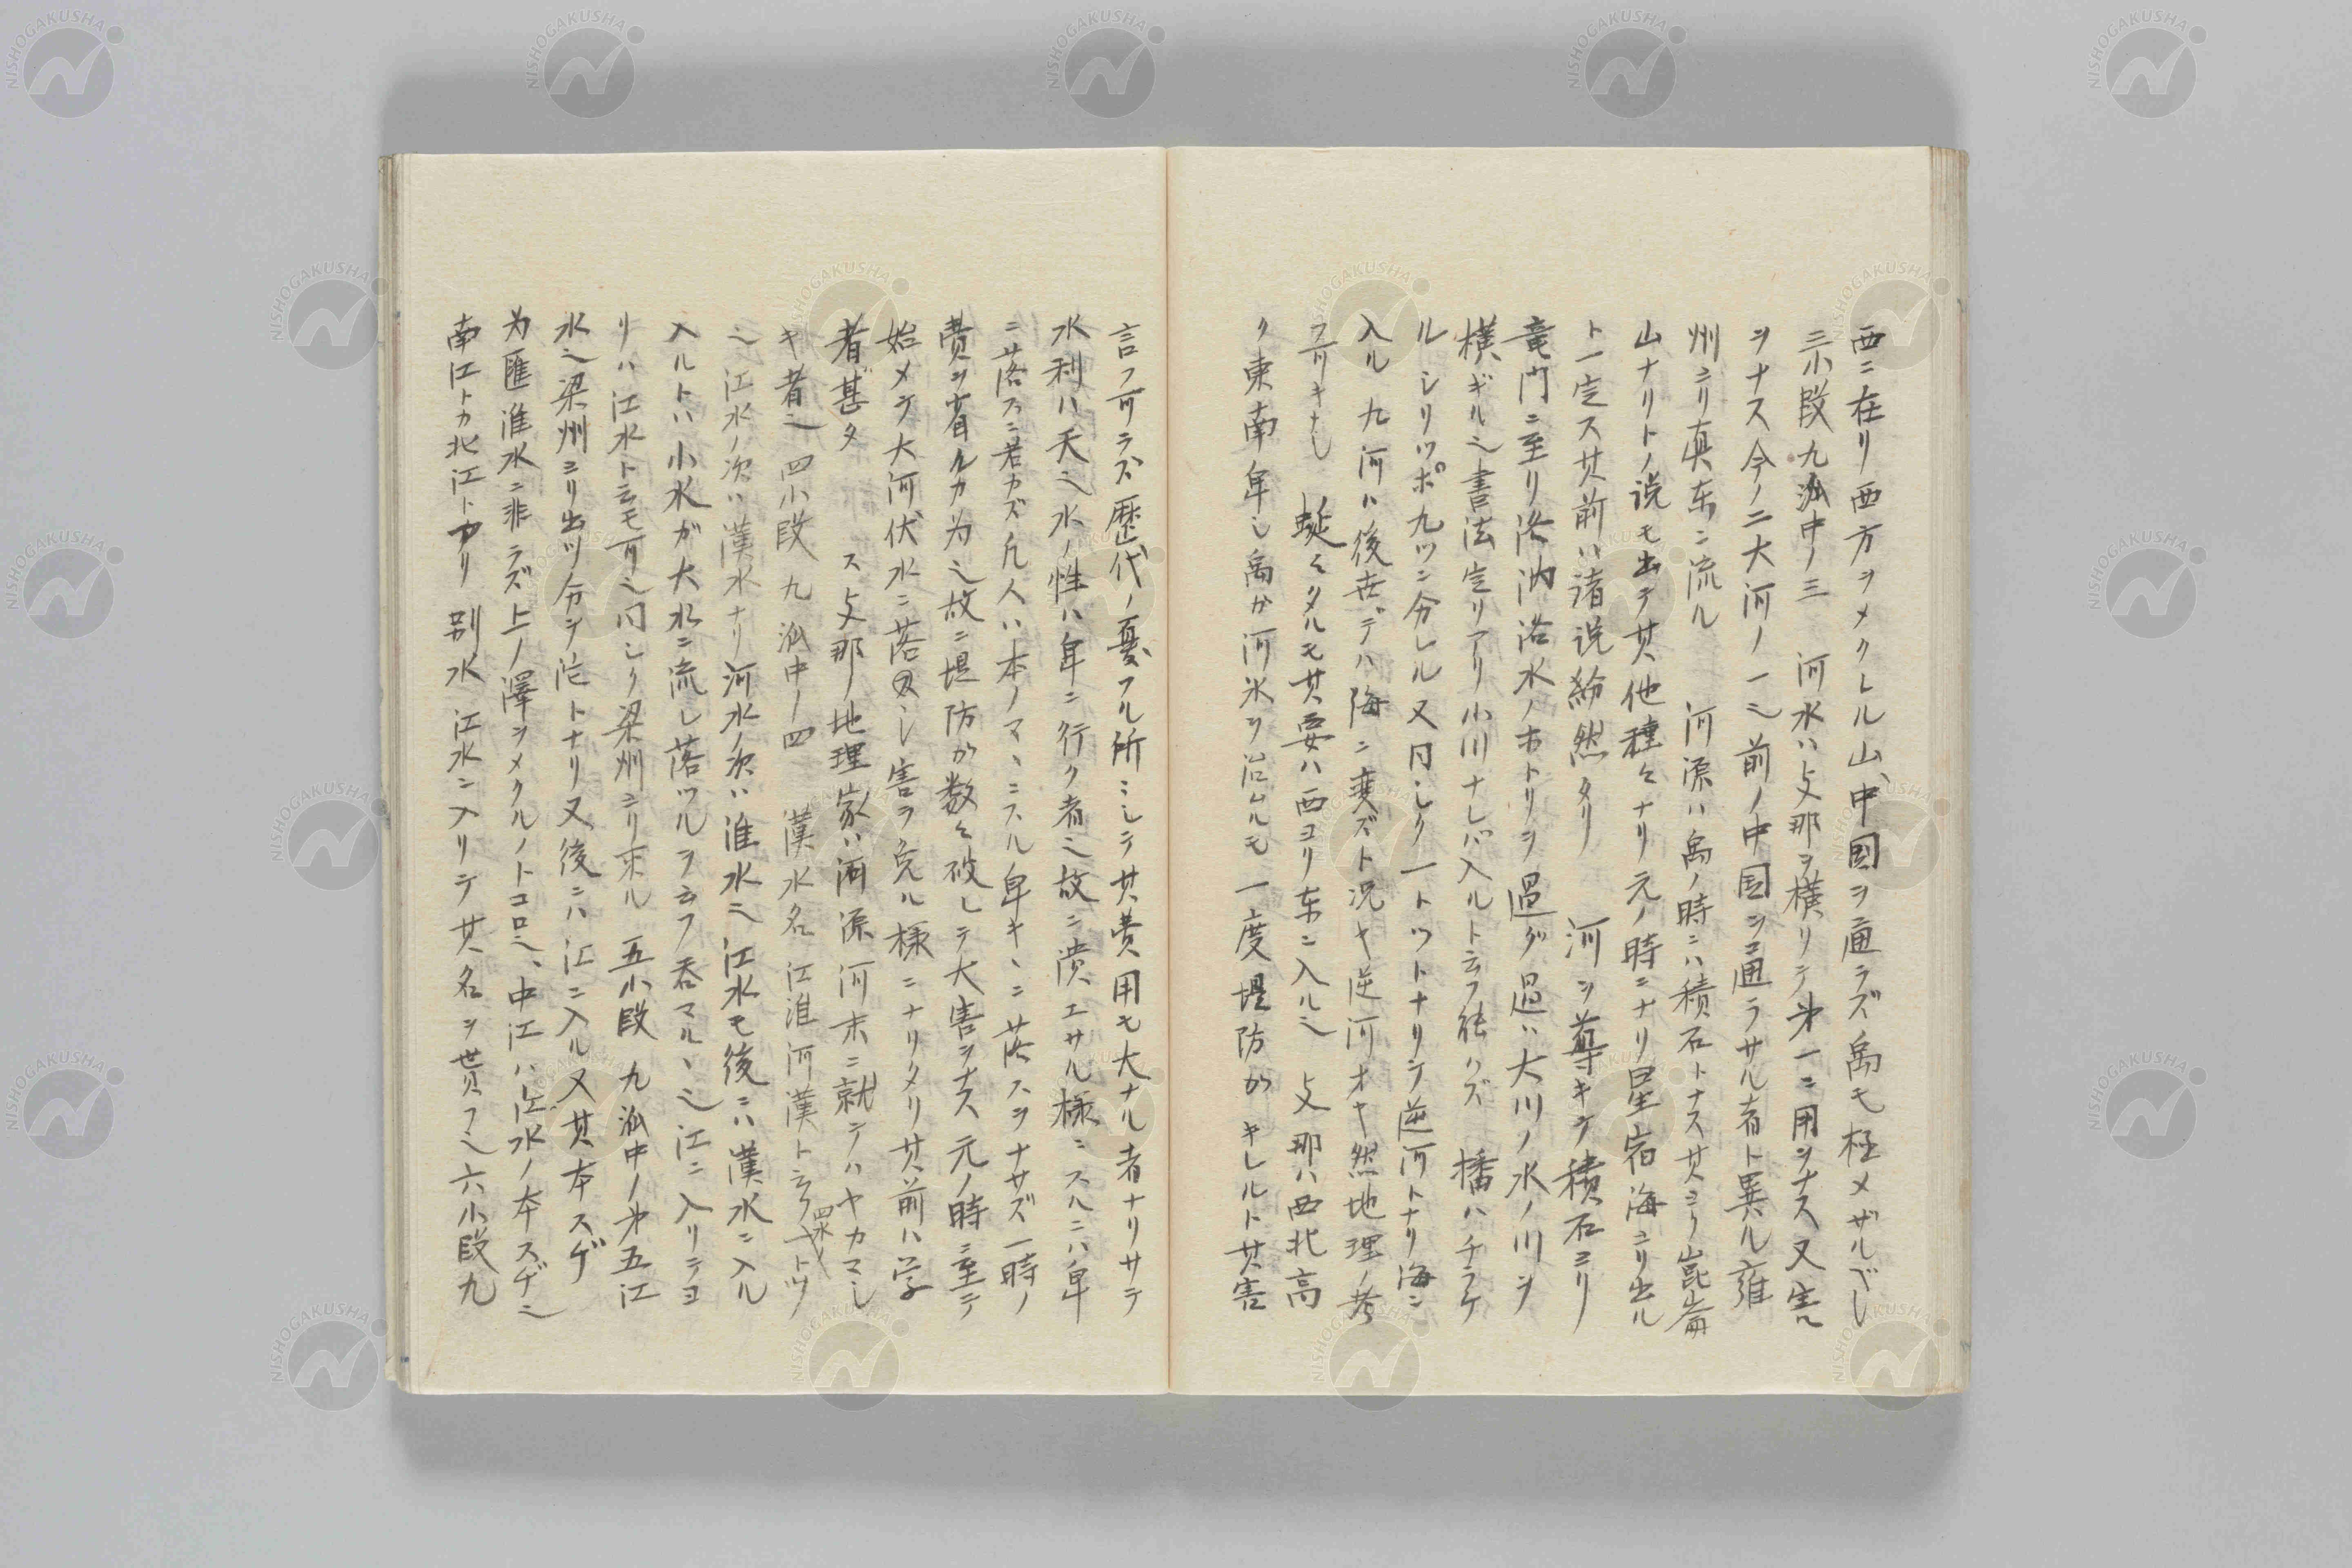 西ニ在リ西方ヲメクレル山、中國ヲ通ラズ禹モ極メザルベシ
三小段九州中ノ三 河水ハ支那ヲ横リテ㐧一ニ用ヲナス又害
ヲナス今ノ二大河ノ一也前ノ中国ヲ通ラサル者ト異ル雍
州ヨリ真东ニ流ル 河源ハ禹ノ時ニハ積石トナス其ヨリ崑崙
山ナリトノ説モ出テ其他種々ナリ元ノ時ニナリ星宿海ヨリ出ル
ト一定ス其前ハ諸説紛然タリ 河ヲ導キテ積石ヨリ
竜門ニ至リ洛汭洛水ノホトリヲ過グ過ハ大川ノ水ノ川ヲ
横ギル也書法定リアリ小川ナレバ入ルト云フ能ハズ 播ハチラケ
ルシリツポ九ツニ分レル又同シク一トツトナリテ逆河トナリ海ニ
入ル 九河ハ後世ニテハ海ニ変ズト况ヤ逆河オヤ然地理ノ考
フ可キナシ 蜒々タルモ其要ハ西ヨリ东ニ入ル也 支那ハ西北高
ク東南卑シ禹が河水ヲ治ムルモ一度堤防がキレルト其害
言フ可ラズ歴代ノ憂フル所ニシテ其費用モ大ナル者ナリサテ
水利ハ天也水ノ性ハ卑ニ行ク者也故ニ潰エサル様ニスルニハ卑
ニ落スニ若カズ凡人ハ本ノマヽニスル卑キヽニ落スヲナサズ一時ノ
費ヲ省ルカ為也故ニ堤防が数々破レテ大害ヲナス元ノ時ニ至テ
始メテ大河伏水ニ落シ害ヲ免ル様ニナリタリ其前ハ学
者甚タ ス支那ノ地理家ハ河源河末ニ就テハヤカマシ
キ者也 四小段九州中ノ四 漢水名江淮河漢ト云フ四水ノ一トツ
也江水ノ次ハ漢水ナリ河水ノ次ハ淮水也江水モ後ニハ漢水ニ入ル
入ルトハ小水ガ大水ニ流レ落ツルヲ云フ呑マルヽ也江ニ入リテヨ
リハ江水ト云モ可也同シク梁州ヨリ来ル 五小段九州中ノ㐧五江
水也梁州ヨリ出ツ分テ沱トナリ又後ニハ江ニ入ル又其本スヂ
为匯淮水ニ非ラズ上ノ澤ヲメクルノトコロ也、中江ハ江水ノ本スヂ也
南江トカ北江トカリ別水江水ニ入リテ其名ヲ貰フ也六小段九